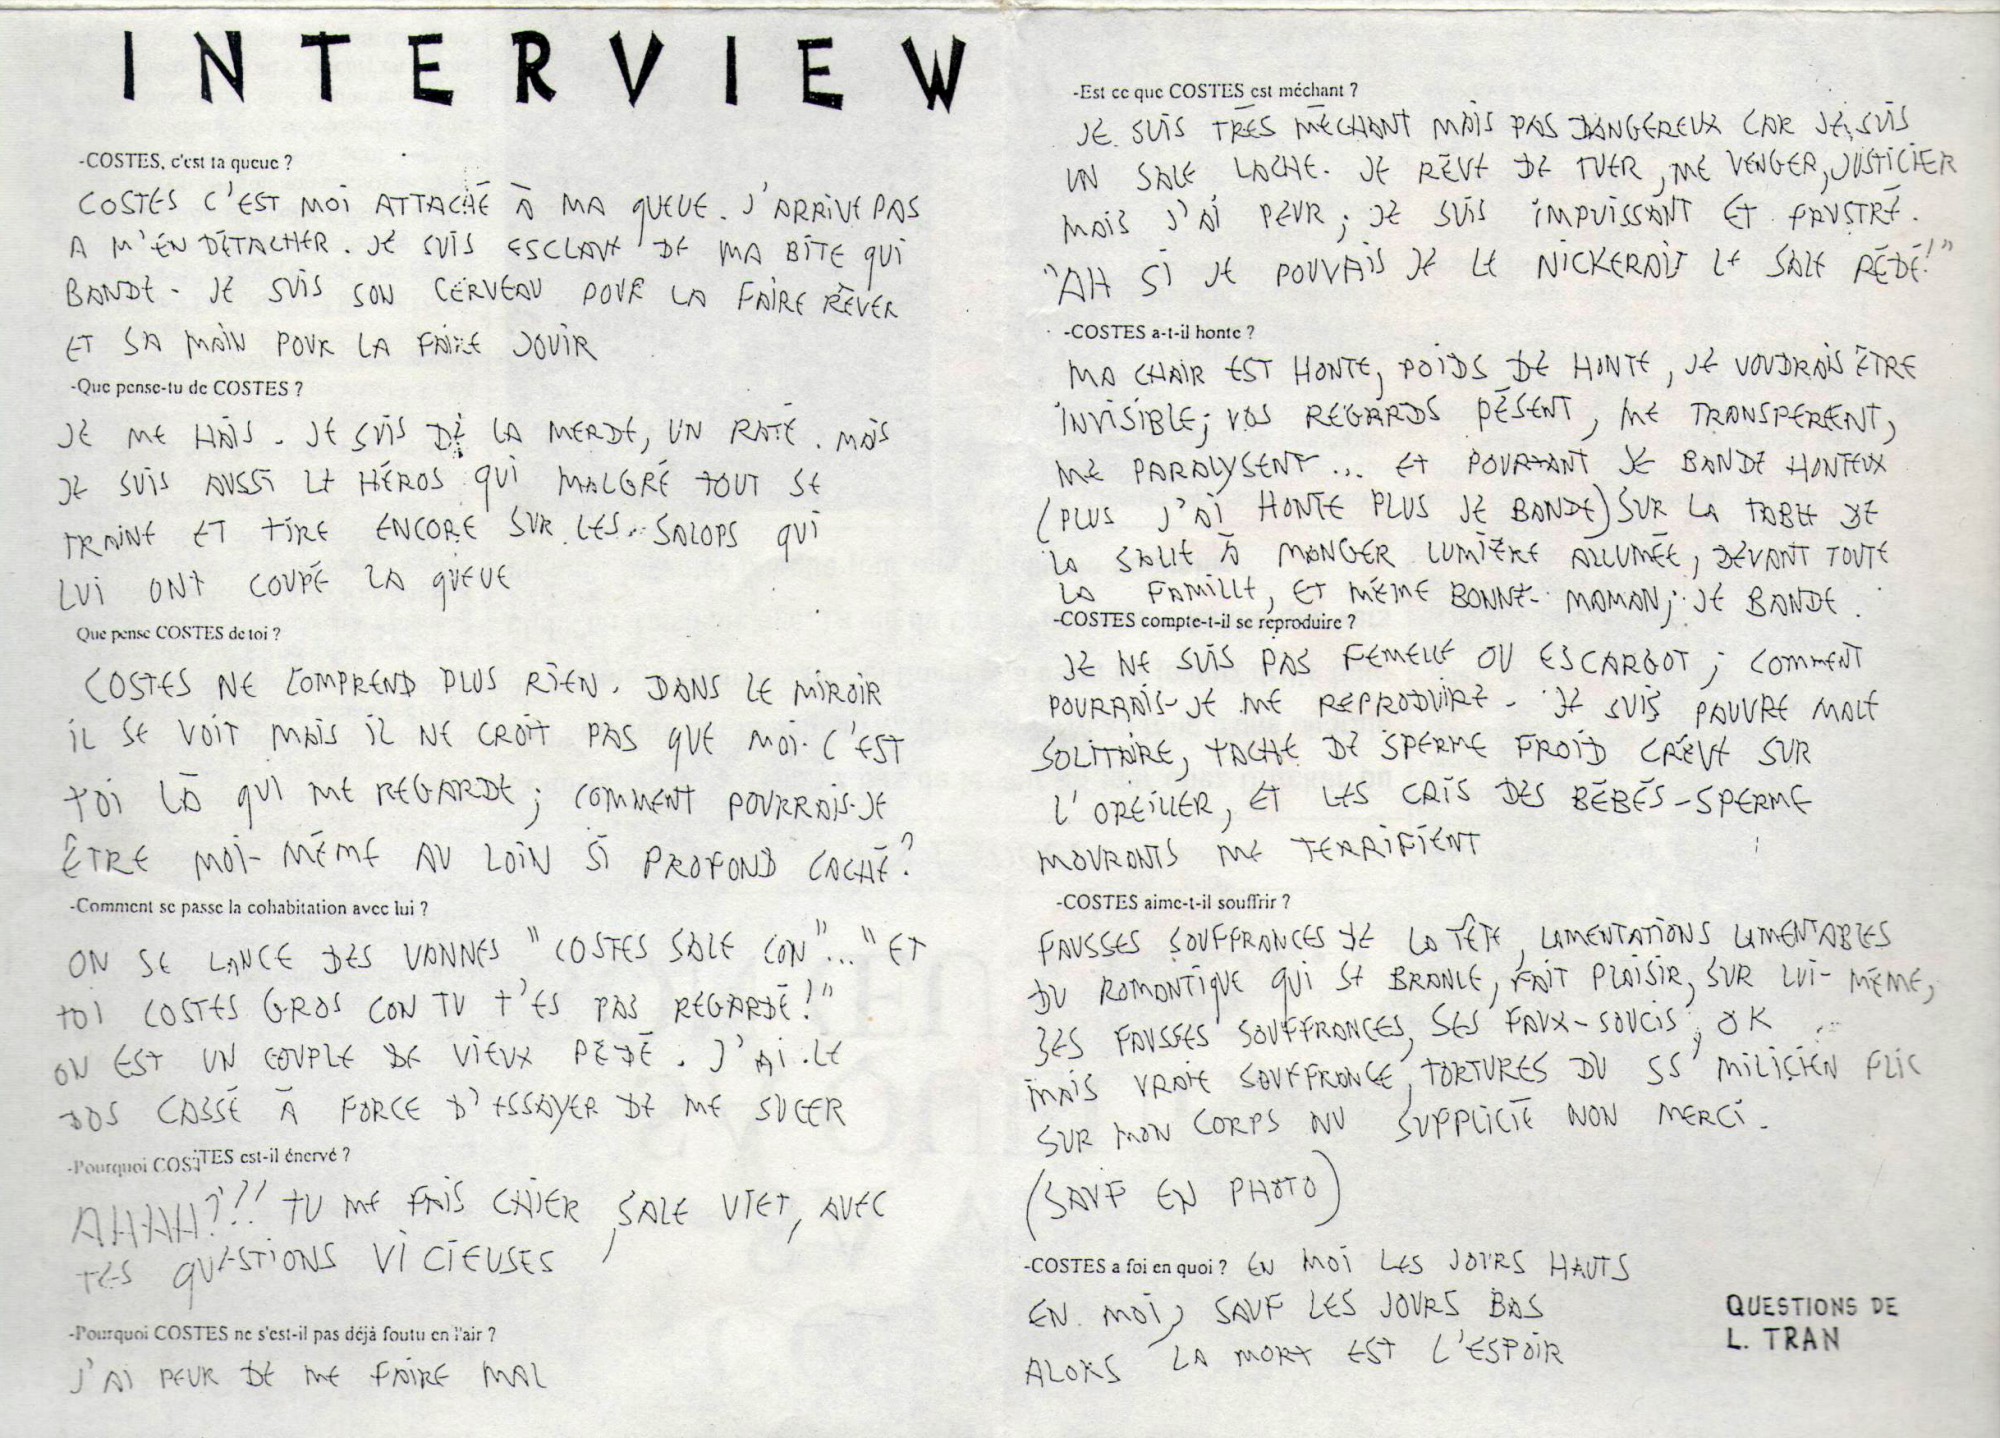 INTERVIEW
-COSTES, c'est ta queue ?
COSTES C'EST MOI ATTACHÉ À MA QUEUE. J'ARRIVE PAS
A M'EN DÉTACHER. JE SUIS ESCLAVE DE MA BITE QUI
BANDE - JE SUIS SON CERVEAU POUR LA FAIRE RÊVER
ET SA MAIN POUR LA FAIRE JOUIR
-Que pense-tu de COSTES ?
JE ME HAIS - JE SUIS DE LA MERDE, UN RATÉ. MAIS
JE SUIS AUSSI LE HÉROS QUI MALGRÉ TOUT SE
TRAINE ET TIRE ENCORE SUR LES SALOPS QUI
LUI ONT COUPÉ LA QUEUE
Que pense COSTES de toi ?
COSTES NE COMPREND PLUS RIEN. DANS LE MIROIR
IL SE VOIT MAIS IL NE CROIT PAS QUE MOI C'EST
TOI LÀ QUI ME REGARDE ; COMMENT POURRAIS-JE
ÊTRE MOI-MÊME AU LOIN SI PROFOND CACHÉ ?
-Comment se passe la cohabitation avec lui ?
ON SE LANCE DES VANNES "COSTES SALE CON"... "ET
TOI COSTES GROS CON TU T'ES PAS REGARDÉ !"
ON EST UN COUPLE DE VIEUX PÉDÉ. J'AI LE
DOS CASSÉ À FORCE D'ESSAYER DE ME SUCER
-Pourquoi COSTES est-il énervé ?
AHAH ?!! TU ME FAIS CHIER, SALE VIET, AVEC
TES QUESTIONS VICIEUSES
-Pourquoi COSTES ne s'est-il pas déjà foutu en l'air ?
J'AI PEUR DE ME FAIRE MAL
-Est ce que COSTES est méchant ?
JE SUIS TRÈS MÉCHANT MAIS PAS DANGEREUX CAR JE SUIS
UN SALE LACHE. JE RÊVE DE TUER, ME VENGER, JUSTICIER
MAIS J'AI PEUR ; JE SUIS IMPUISSANT ET FRUSTRÉ.
"AH SI JE POUVAIS JE LE NICKERAIS LE SALE PÉDÉ !"
-COSTES a-t-il honte ?
MA CHAIR EST HONTE, POIDS DE HONTE, JE VOUDRAIS ÊTRE
INVISIBLE ; VOS REGARDS PÈSENT, ME TRANSPERCENT,
ME PARALYSENT ... ET POURTANT JE BANDE HONTEUX
(PLUS J'AI HONTE PLUS JE BANDE) SUR LA TABLE DE
LA SALLE À MANGER LUMIÈRE ALLUMÉE, DEVANT TOUTE
LA FAMILLE, ET MÊME BONNE-MAMAN ; JE BANDE.
-COSTES compte-t-il se reproduire ?
JE NE SUIS PAS FEMELLE OU ESCARGOT ; COMMENT
POURRAIS-JE ME REPRODUIRE - JE SUIS PAUVRE MALE
SOLITAIRE, TACHE DE SPERME FROID CRÈVE SUR
L'OREILLER, ET LES CRIS DES BÉBÉS-SPERME
MOURANTS ME TERRIFIENT
-COSTES aime-t-il souffrir ?
FAUSSES SOUFFRANCES DE LA TÊTE, LAMENTATIONS LAMENTABLES
DU ROMANTIQUE QUI SE BRANLE, FAIT PLAISIR, SUR LUI-MÊME,
SES FAUSSES SOUFFRANCES, SES FAUX-SOUCIS, OK
MAIS VRAIE SOUFFRANCE, TORTURES DU SS MILICIEN FLIC
SUR MON CORPS NU SUPPLICIÉ NON MERCI.
(SAUF EN PHOTO)
-COSTES a foi en quoi ? EN MOI LES JOURS HAUTS
EN MOI, SAUF LES JOURS BAS
ALORS LA MORT EST L'ESPOIR
QUESTIONS DE
L. TRAN